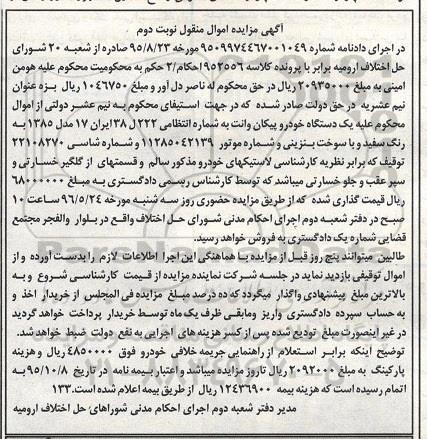 آگهی مزایده اموال منقول نوبت دوم
در اجرای دادنامه شماره ۹۵۰۹۹۷۴۴۶۷۰۰۱۰۴۹ مورخه ۹۵/۸/۲۳ صادره از شعبه ۲۰ شورای
حل اختلاف ارومیه برابر با پرونده کلاسه ۹۵۲۵۵۶ احکام/۲ حکم به محکومیت محکوم علیه هومن
امینی به مبلغ ۲۰۹۳۵۰۰۰ ریال در حق محکوم له ناصر دل آور و مبلغ ۱۰۴۶۷۵۰ ریال بزه عنوان
نیم عشریه در حق دولت صادر شده که در جهت استیفای محکوم به و نیم عشر دولتی از اموال
محکوم علیه یک دستگاه خودرو پیکان وانت به شماره انتظامی ۲۲۲ ل ۳۸ ایران ۱۷ مدل ۱۳۸۵ به
رنگ سفید و با سوخت بنزینی و شماره موتور ۱۱۲۸۵۰۴۲۱۳۹ و شماره شاسی ۲۲۱۰۸۲۷۰
توقیف که برابر نظریه کارشناسی لاستیکهای خودرو مذکور سالم و قسمتهای از گلگیر خسارتی و
سپر عقب و جلو خسارتی میباشد که توسط کارشناس رسمی دادگستری به مبلغ ۶۸۰۰۰۰۰۰
ریال قیمت گذاری شده که از طریق مزایده حضوری روز سه شنبه مورخه ۹۶/۵/۲۴ ساعت ۱۰
صبح در دفتر شعبه دوم اجرای احکام مدنی شورای حل اختلاف واقع در بلوار والفجر مجتمع
قضایی شماره یک دادگستری به فروش خواهد رسید.
طالبین میتوانند پنج روز قبل از مزایده با هماهنگی این اجرا اطلاعات لازم را بدست آورده و از
اموال توقیفی بازدید نماید در جلسه شرکت نماینده مزایده از قیمت کارشناسی شروع و به
بالاترین مبلغ پیشنهادی واگذار میگردد که ده درصد مبلغ مزایده فی المجلس از خریدار اخذ و
به حساب سپرده دادگستری واریز ومابقی ظرف یک ماه توسط خریدار پرداخت خواهد گردید
در غیر اینصورت مبلغ تودیع شده پس از کسر هزینه های اجرایی به نفع دولت ضبط خواهد شد.
توضیح اینکه برابر استعلام از راهنمایی جریمه خلافی خودرو فوق ۴۸۵۰۰۰۰ ریال و هزینه
پارکینگ به مبلغ ۲۰۹۲۰۰۰ ریال تاروز مزایده میباشد و اعتبار بیمه نامه در تاریخ ۹۵/۱۰/۸ به
اتمام رسیده است که هزینه بیمه ۱۲۴۳۶۹۰۰ ریال از طریق بیمه اعلام شده است.۱۳۳
مدیر دفتر شعبه دوم اجرای احکام مدنی شوراهای حل اختلاف ارومیه